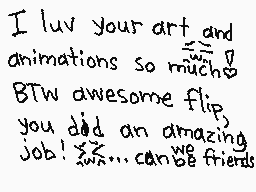 I luv your art and
animations so much!
BTW awesome flip,
you did an amazing
job! >.< ... can we be friends